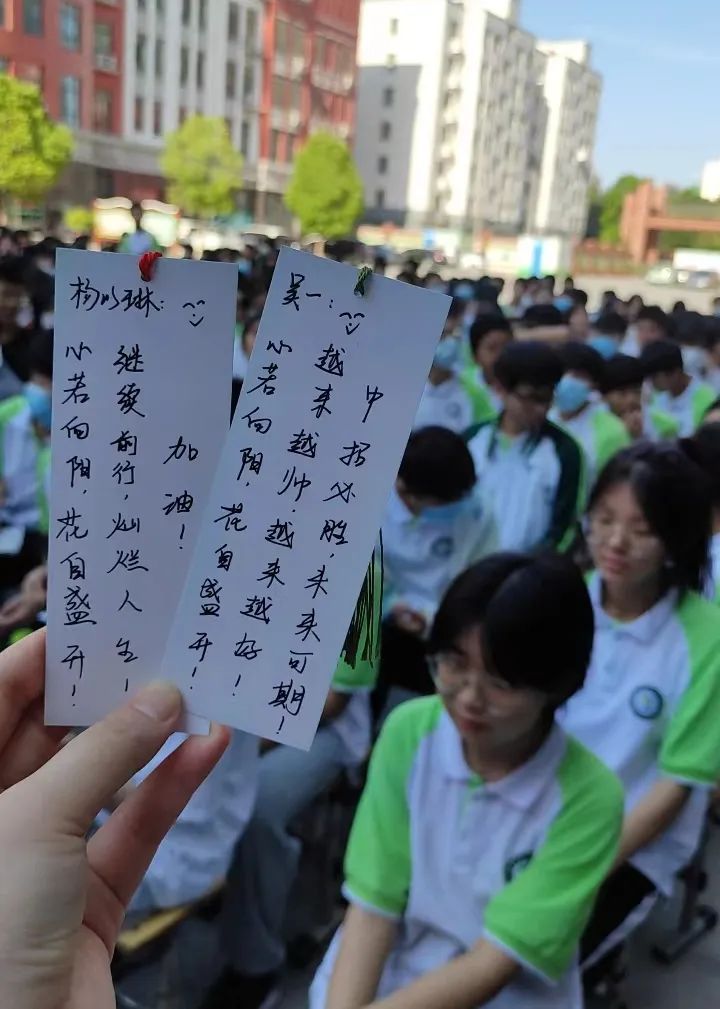 杨以琳:
小若向阳,花自盛开!
继续前行,灿烂人生!
加油!
吴一:
小若向阳,花自盛开!
越来越帅,越来越好!
中招必胜,未来可期!